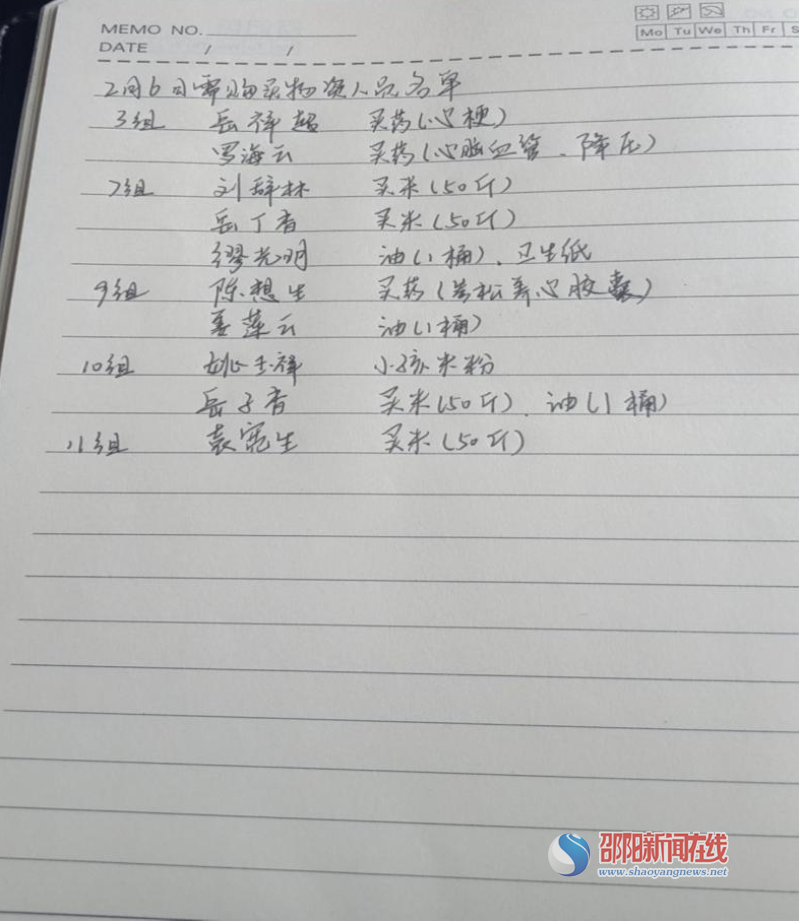 MEMO NO.
DATE / /
Mo Tu We Th Fr S
2月6日需购买物资人员名单
3组 岳祥超 买药(心梗)
罗海云 买药(心脑血管、降压)
7组 刘辞林 买米(50斤)
岳丁香 买米(50斤)
缪光明 油(1桶)、卫生纸
9组 陈想生 买药(苦松养心胶囊)
姜莲云 油(1桶)
10组 姚玉祥 小孩米粉
岳子香 买米(50斤)、油(1桶)
11组 袁宽生 买米(50斤)
邵阳新闻在线
www.shaoyangnews.net